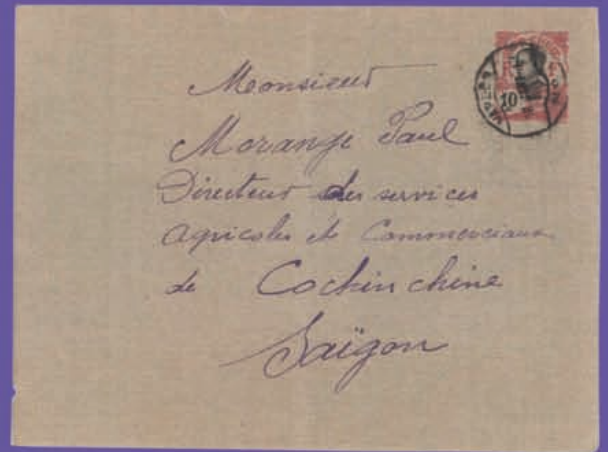 Monsieur
Morange Paul
Directeur des services
Agricoles et Commerciaux
de Cochinchine
Saïgon
10